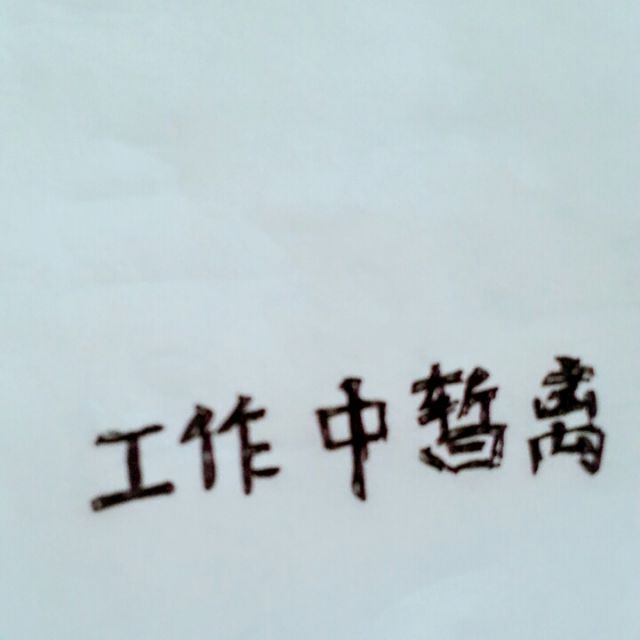 工作中暂离